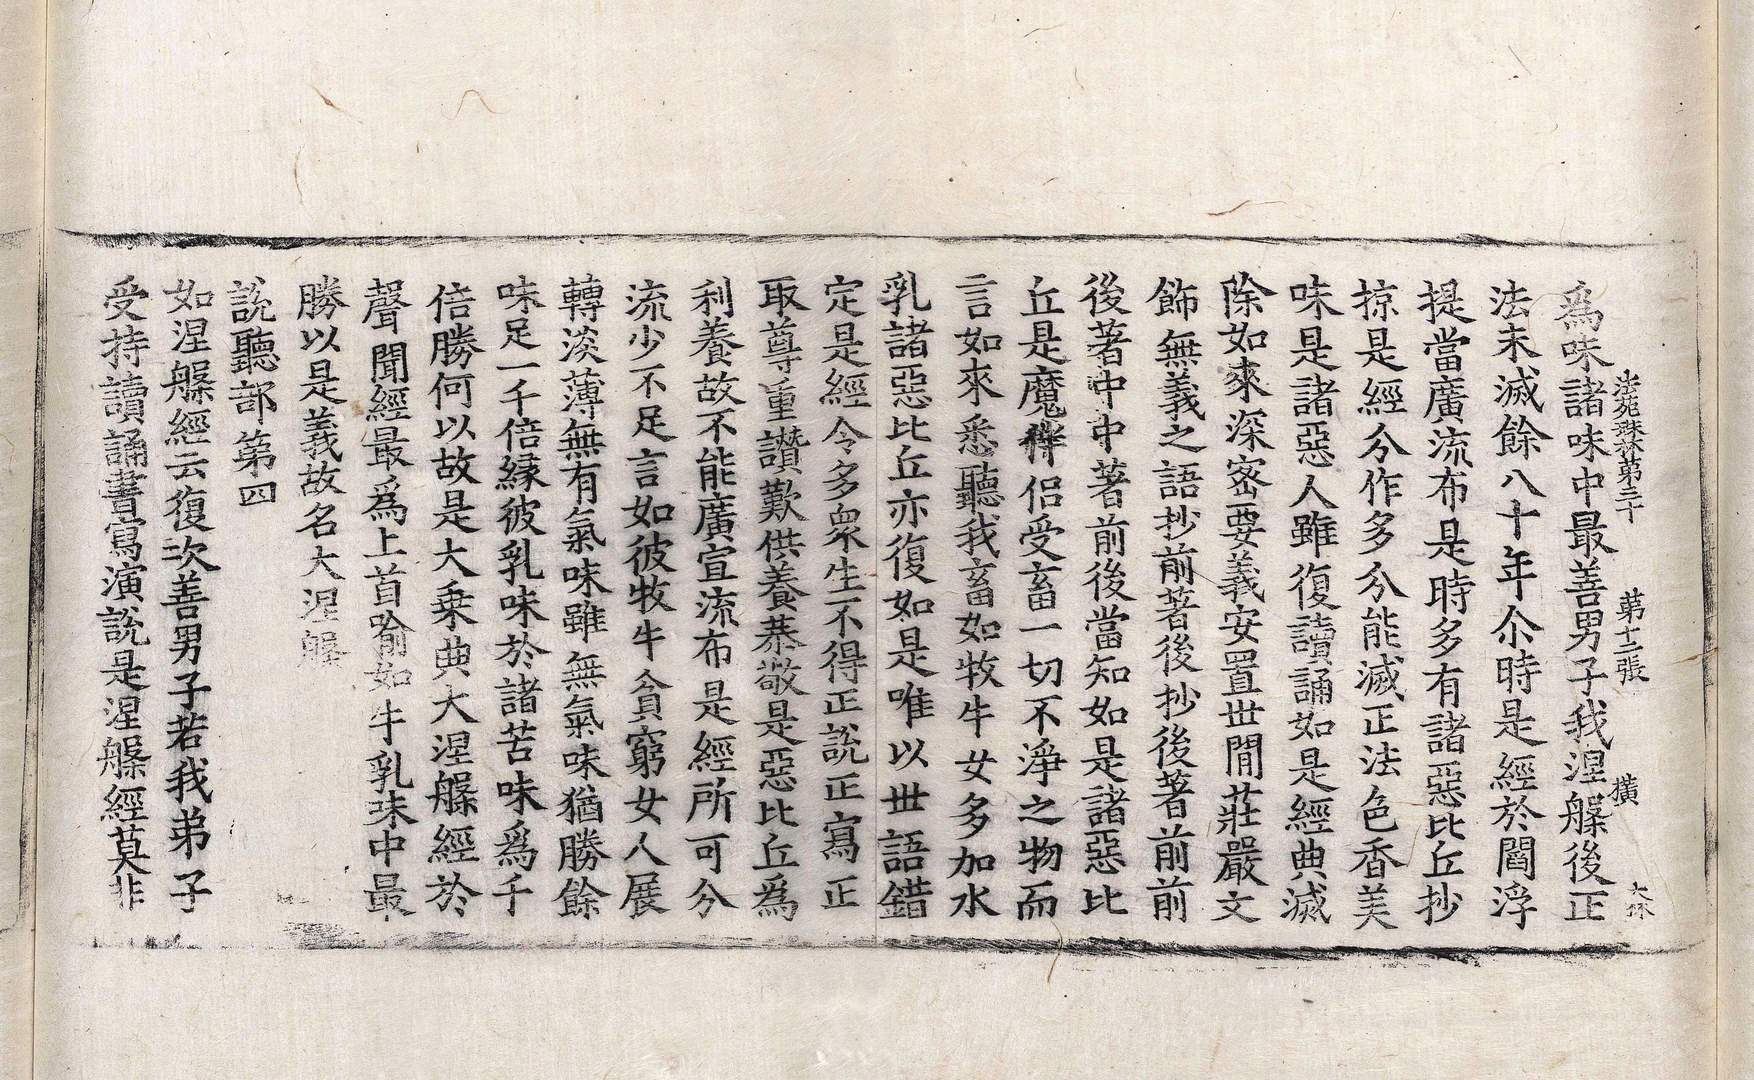 法苑珠林第三十　第十二張　橫　大休
爲味諸味中最善男子我涅槃後正
法未滅餘八十年尒時是經於閻浮
提當廣流布是時多有諸惡比丘抄
掠是經分作多分能滅正法色香美
味是諸惡人雖復讀誦如是經典滅
除如來深密要義安置世間莊嚴文
飾無義之語抄前著後抄後著前前
後著中中著前後當知如是諸惡比
丘是魔伴侶受畜一切不淨之物而
言如來悉聽我畜如牧牛女多加水
乳諸惡比丘亦復如是唯以世語錯
定是經令多衆生不得正說正寫正
取尊重讚歎供養恭敬是惡比丘爲
利養故不能廣宣流布是經所可分
流少不足言如彼牧牛貧窮女人展
轉淡薄無有氣味雖無氣味猶勝餘
味足一千倍縁彼乳味於諸苦味爲千
倍勝何以故是大乗典大涅槃經於
聲聞經最爲上首喻如牛乳味中最
勝以是義故名大涅槃
說聽部第四
如涅槃經云復次善男子若我弟子
受持讀誦書寫演說是涅槃經莫非